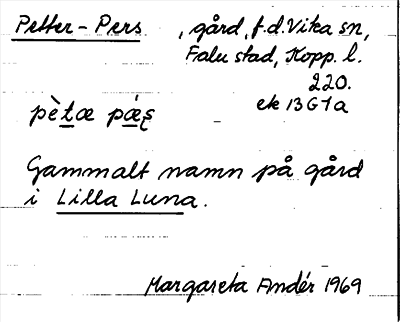 Petter-Pers , gård, f.d. Vika sn,
Falu stad, Kopp. l.
220.
ek 13G1a
pètæ pæ̀ʂ
Gammalt namn på gård
i Lilla Luna.
Margareta Andér 1969